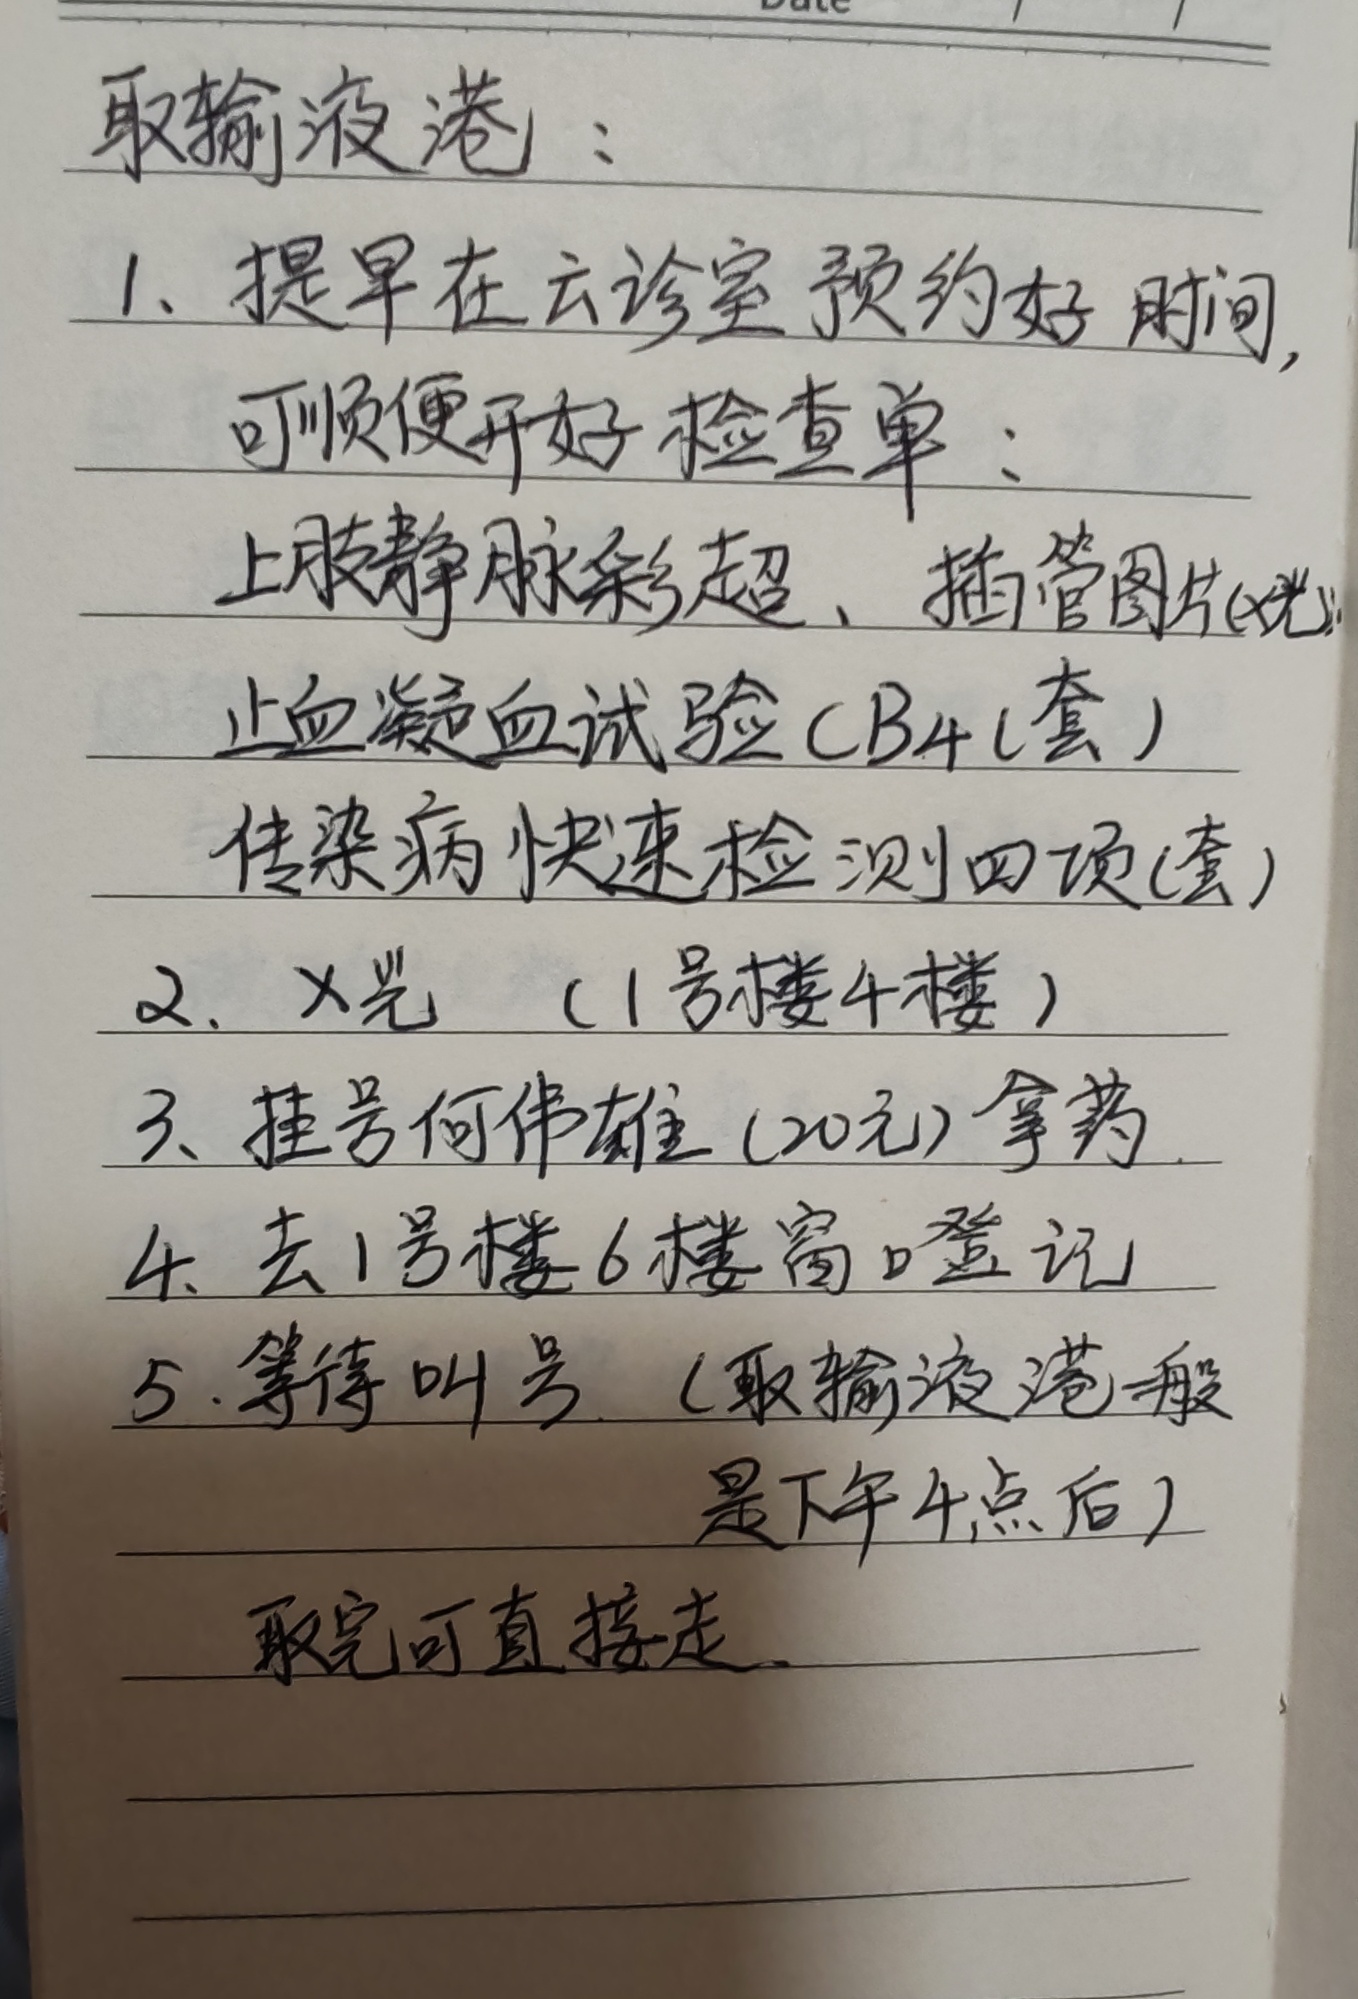 Date / /
取输液港：
1、提早在云诊室预约好时间，
可顺便开好检查单：
上肢静脉彩超、插管图片(X光)、
止血凝血试验(B4(套)
传染病快速检测四项(套)
2、X光 (1号楼4楼)
3、挂号何伟雄(20元)拿药.
4、去1号楼6楼窗口登记
5.等待叫号.(取输液港一般
是下午4点后)
取完可直接走.